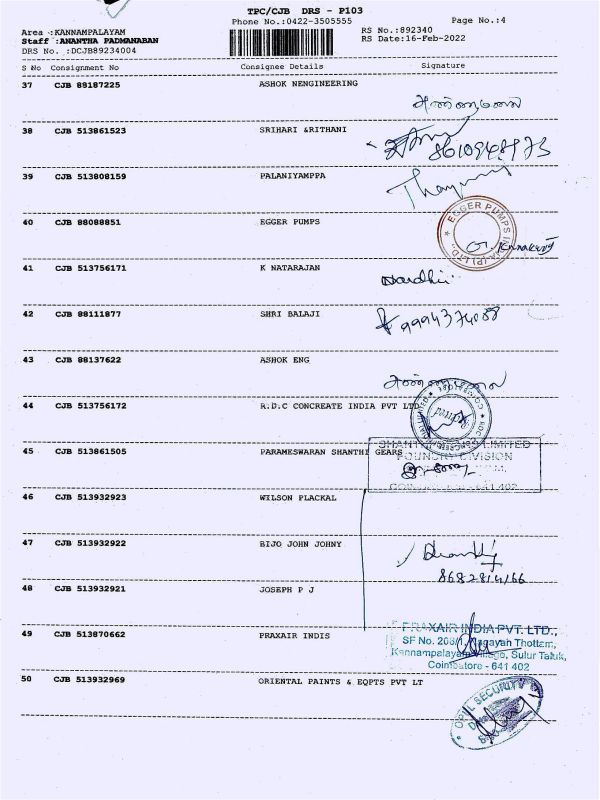 TPC/CJB DRS - P103
Phone No.:0422-3505555 Page No.:4
Area :KANNAMPALAYAM RS No.:892340
Staff :ANANTHA PADMANABAN RS Date:16-Feb-2022
DRS No. :DCJB89234004
S No Consignment No Consignee Details Signature
37 CJB 88187225 ASHOK NENGINEERING
38 CJB 513861523 SRIHARI &RITHANI
8610948973
39 CJB 513808159 PALANIYAMPPA
40 CJB 88088851 EGGER PUMPS
EGGER PUMPS INDIA (P) LTD.
41 CJB 513756171 K NATARAJAN
42 CJB 88111877 SHRI BALAJI
9994374088
43 CJB 88137622 ASHOK ENG
44 CJB 513756172 R.D.C CONCREATE INDIA PVT LTD
45 CJB 513861505 PARAMESWARAN SHANTHI GEARS
SHANTHI GEARS LIMITED
FOUNDRY DIVISION
641 402
46 CJB 513932923 WILSON PLACKAL
47 CJB 513932922 BIJO JOHN JOHNY
48 CJB 513932921 JOSEPH P J
49 CJB 513870662 PRAXAIR INDIS
PRAXAIR INDIA PVT. LTD.,
SF No. 208/1, Thottam,
Kannampalayam Village, Sulur Taluk,
Coimbatore - 641 402
50 CJB 513932969 ORIENTAL PAINTS & EQPTS PVT LT
OPIL SECURITY